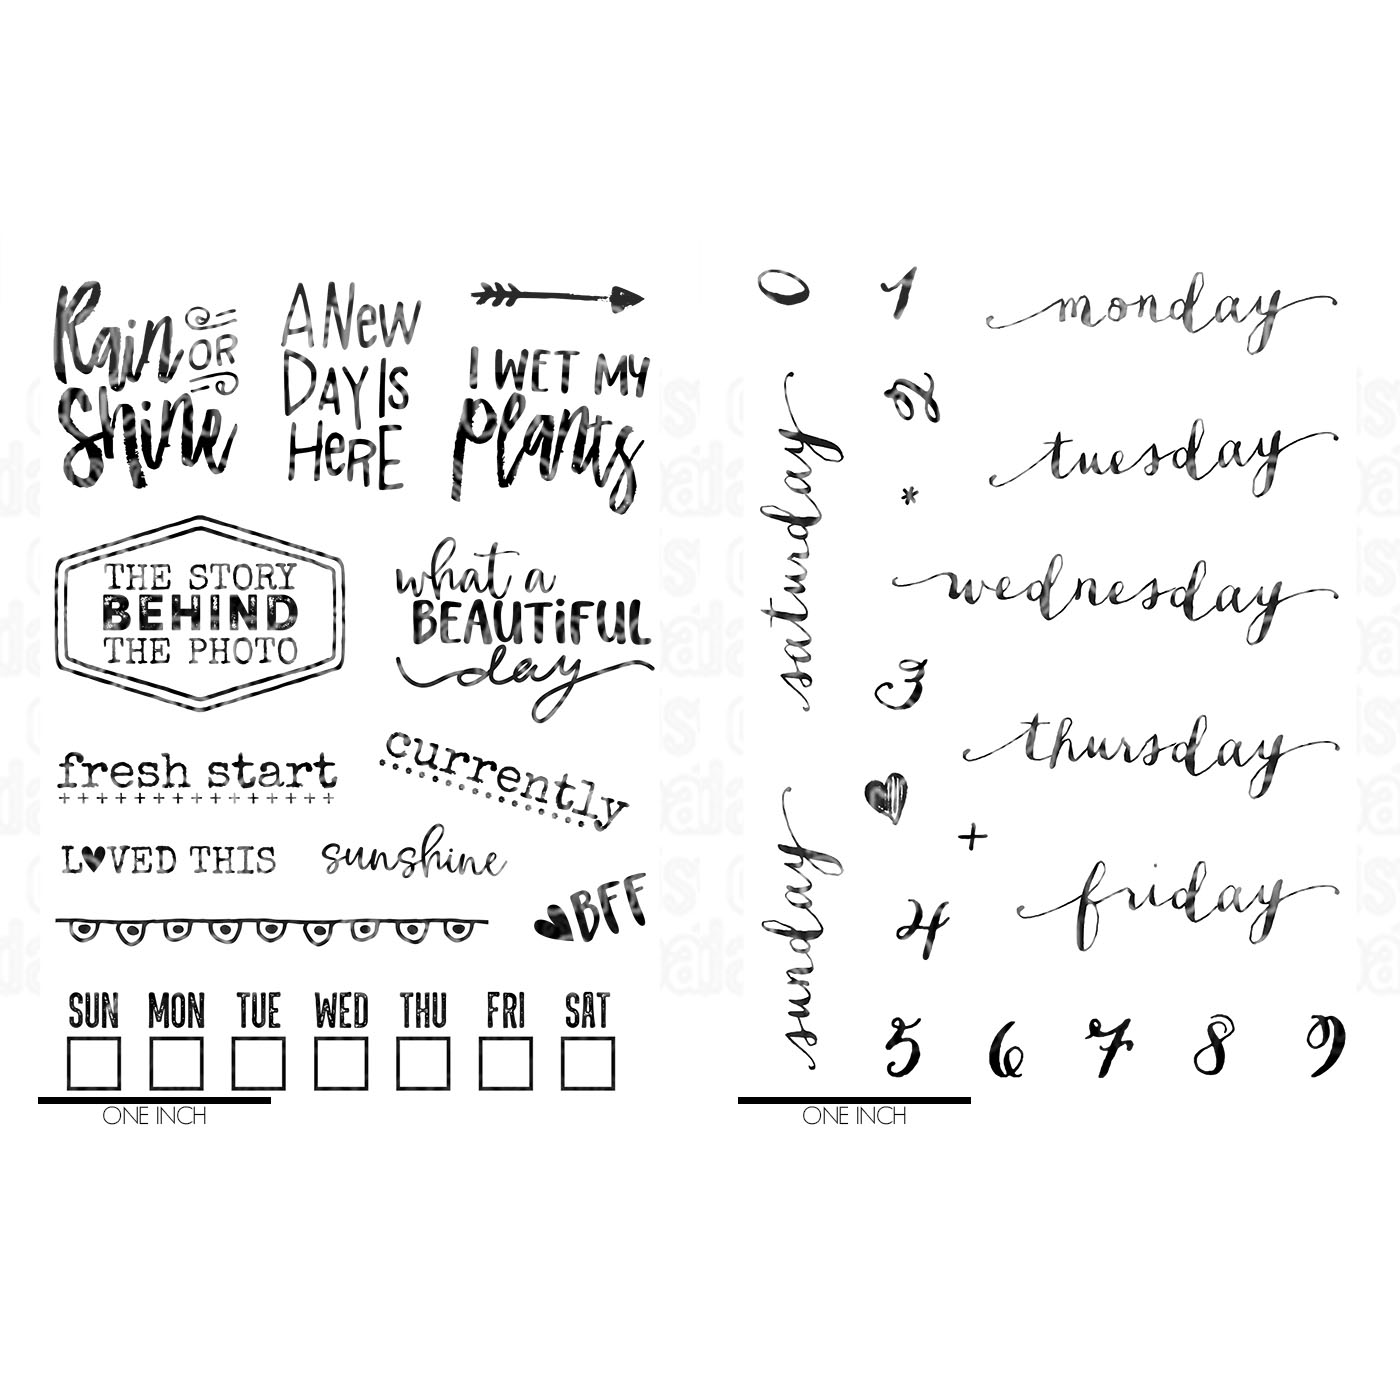 Rain OR
Shine
A New
Day Is
Here
I WET MY
plants
THE STORY
BEHIND
THE PHOTO
what a
BEAUTiFUL
day
fresh start
currently
L♥VED THIS
sunshine
♥BFF
SUN MON TUE WED THU FRI SAT
ONE INCH
0 1
monday
2
tuesday
*
saturday
wednesday
3
thursday
+
sunday
friday
4
5 6 7 8 9
ONE INCH